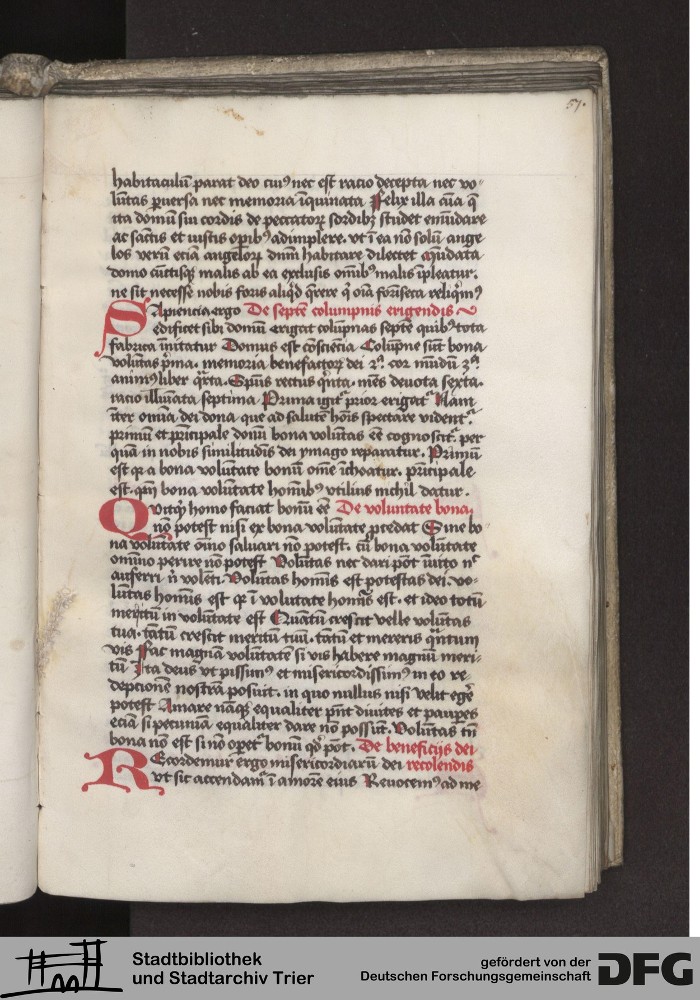 57.
habitaculū parat deo cuiꝰ nec est racio decepta nec vo-
lūtas ꝑuersa nec memoria īquinata Felix illa aīa q̄
ita domū sui cordis de peccatoꝝ sordibꝫ studet emūdare
ac sāctis et iustis oꝑibꝰ adimplere. vt ī ea nō solū ange
los verū eciā angeloꝝ dn̄m habitare dilectet
domo cūctisqꝫ malis ab ea exclusis om̄ibꝰ īpleatur.
ne sit necesse nobis foris aliqͥd q̄rere q̄ oīa forīseca reliqͥmꝰ
Sapiencia ergo De septē columpnis erigendis
edificet sibi domū erigat colūpnas septē quibꝰ tota
fabrica īnitatur Domus est cōsciēcia Colūpne sūt bona
volūtas pͥma. memoria benefactoꝝ dei 2ᵃ. cor mūdū 3ᵃ.
animꝰ liber qͣrta. Spūs rectus qͥnta. mēs deuota sexta.
racio illūīata septima Prima igiťᷣ prior erigatᷣ Nam
īter omīa dei dona que ad salutē hoīs spectare videntᷣ.
primū et pͥncipale donū bona volūtas eē cognoscitᷣ. per
quā in nobis similitudīs dei ymago reparatur. Primū
est qꝛ a bona volūtate bonū om̄e īchoatur. pͥncipale
est. qm̄ bona volūtate homībꝰ vtilius nichil datur.
Quitqͥd homo faciat bonū eē De voluntate bona.
nō potest nisi ex bona volūtate ꝓcedat Sine bo
na volūtate om̄īo saluari nō potest. cū bona volūtate
om̄īno perire nō potest Volūtas nec dari pōt īuito nͨ
auferri n̄ volēti. Volūtas homīs est potestas dei. vo-
lūtas homīs est qꝛ ī volūtate homīs est. et ideo totū
meritū in volūtate est Quātū crescit velle volūtas
tua. tātū crescit meritū tuū. tātū et mereris qͣntum
vis Fac magnā volūtatē si vis habere magnū meri-
tū Ita deus vt pijssimꝰ et misericordissimꝰ in eo re-
depcionē nostrā posuit. in quo nullus nisi velit egē
potest Amare nāqꝫ equaliter pn̄t diuites et pauꝑes
eciā si pecuniā equaliter dare nō possūt. Volūtas tn̄
bona nō est si nō oꝑetᷣ bonū qd̄ pōt. De beneficijs dei
Recordemur ergo misericordiarū dei recolendis
vt sic accendamᷣ ī amorē eius Reuocemꝰ ad me
Stadtbibliothek
und Stadtarchiv Trier
gefördert von der
Deutschen Forschungsgemeinschaft
DFG